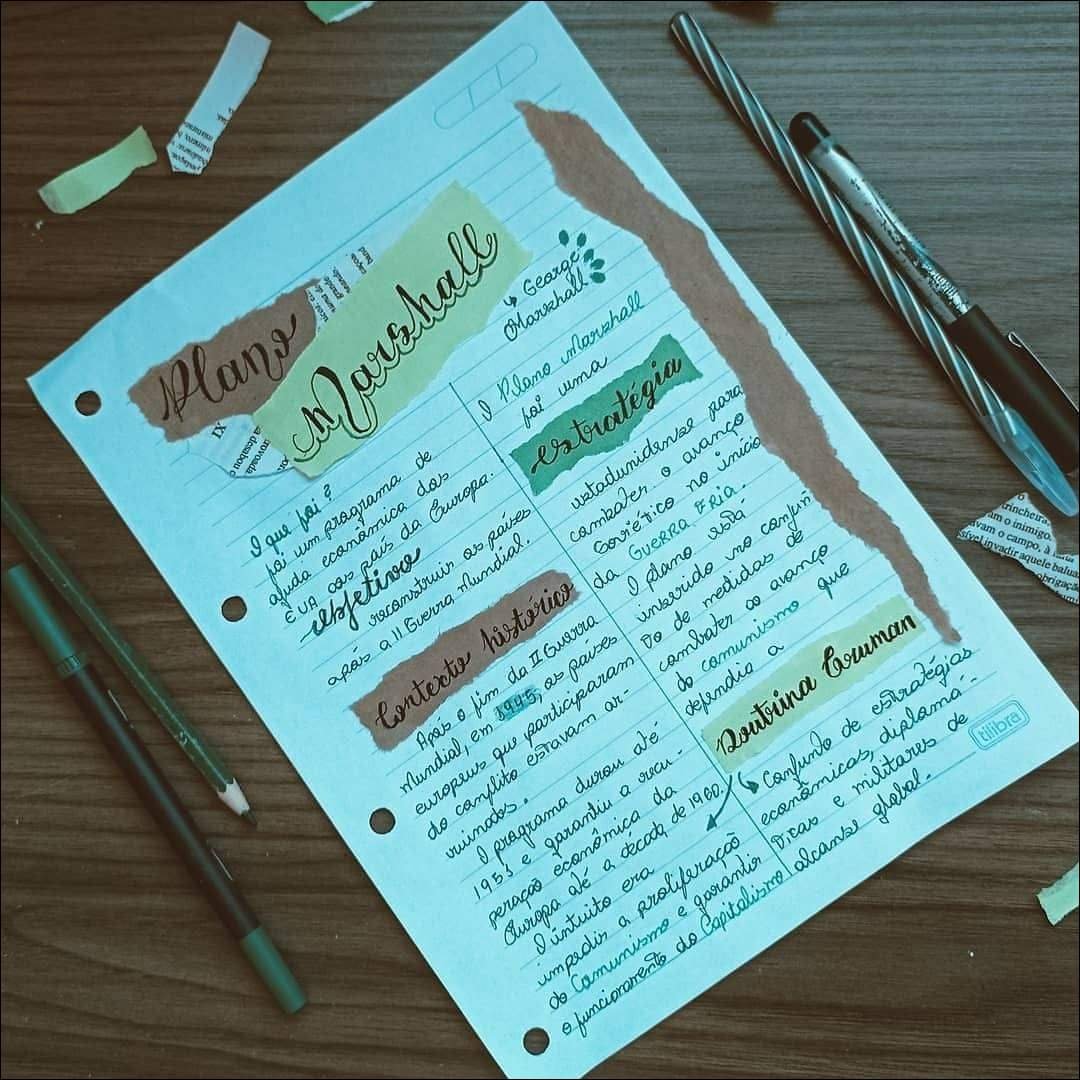 Plano
Marshall
George
Marshall
O que foi?
foi um programa de
ajuda econômica dos
EUA aos país da Europa.
objetivo
reconstruir os países
após a II Guerra Mundial.
Contexto histórico
Após o fim da II Guerra
Mundial, em 1945, os países
europeus que participaram
do conflito estavam ar-
ruinados.
O programa durou até
1953 e garantiu a recu-
peração econômica da
Europa até a década de 1960.
O intuito era
impedir a proliferação
do Comunismo e garantir
o funcionamento do Capitalismo
O Plano Marshall
foi uma
estratégia
estadunidense para
combater o avanço
Soviético no início
da GUERRA FRIA.
O plano está
inserido no conjun
to de medidas de
combater ao avanço
do comunismo que
defendia a
Doutrina Truman
Conjunto de estratégias
econômicas, diplomá-
ticas e militares de
alcance global.
tilibra
IX
rincheira
am o inimigo,
avam o campo, à
sível invadir aquele balua